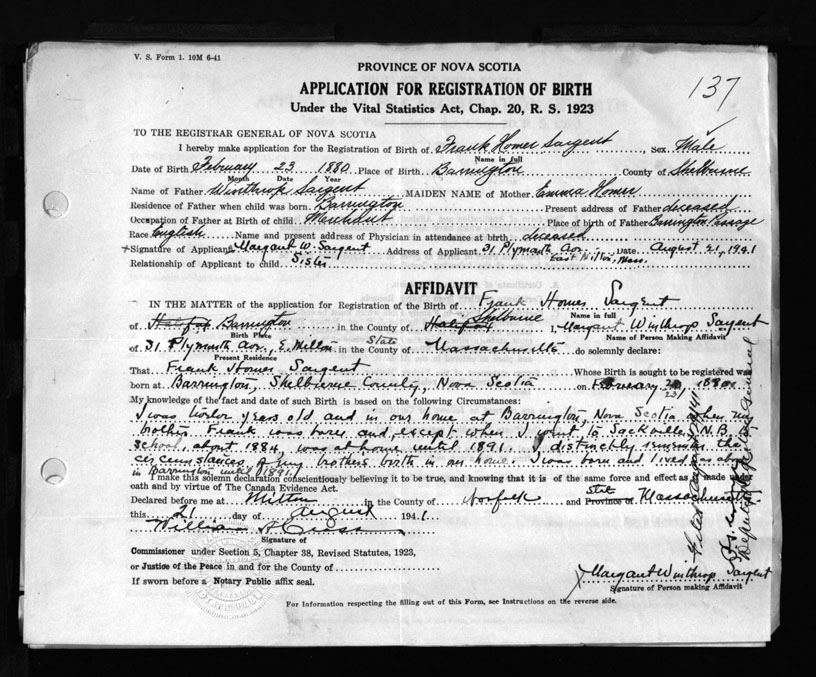 V. S. Form 1. 10M 6-41
137
PROVINCE OF NOVA SCOTIA
APPLICATION FOR REGISTRATION OF BIRTH
Under the Vital Statistics Act, Chap. 20, R. S. 1923
TO THE REGISTRAR GENERAL OF NOVA SCOTIA
I hereby make application for the Registration of Birth of Frank Homer Sargent, Sex Male
Name in full
Date of Birth February 23 1880 Place of Birth Barrington County of Shelburne
Month Date Year
Name of Father Winthrop Sargent MAIDEN NAME of Mother Emma Homer
Residence of Father when child was born Barrington Present address of Father deceased
Occupation of Father at Birth of child Merchant Place of birth of Father Barrington Passage
Race English Name and present address of Physician in attendance at birth deceased
Signature of Applicant Margaret W. Sargent Address of Applicant 31 Plymouth Ave. East Milton, Mass. Date August 21, 1941
Relationship of Applicant to child Sister
AFFIDAVIT
IN THE MATTER of the application for Registration of the Birth of Frank Homer Sargent
Name in full
of Halifax Barrington in the County of Halifax Shelburne I, Margaret Winthrop Sargent
Birth Place Name of Person Making Affidavit
of 31 Plymouth Ave., E. Milton in the County of State Massachusetts do solemnly declare:
Present Residence
That Frank Homer Sargent Whose Birth is sought to be registered was
born at Barrington, Shelburne County, Nova Scotia on February 23/ 1880
My knowledge of the fact and date of such Birth is based on the following Circumstances:
I was twelve years old and in our home at Barrington, Nova Scotia when my
brother Frank was born and, except when I went to Sackville, N.B.
School, about 1884, was at home until 1891. I distinctly remember the
circumstances of my brothers birth in our home. I was born and lived
in Barrington until 1891.
I make this solemn declaration conscientiously believing it to be true, and knowing that it is of the same force and effect as if made under
oath and by virtue of The Canada Evidence Act.
Declared before me at Milton in the County of Norfolk and Province of State Massachusetts
this 21 day of August 1941
William A
Signature of
Commissioner under Section 5, Chapter 38, Revised Statutes, 1923,
or Justice of the Peace in and for the County of
If sworn before a Notary Public affix seal.
Margaret Winthrop Sargent
Signature of Person making Affidavit
For Information respecting the filling out of this Form, see Instructions on the reverse side.
Deputy Registrar General